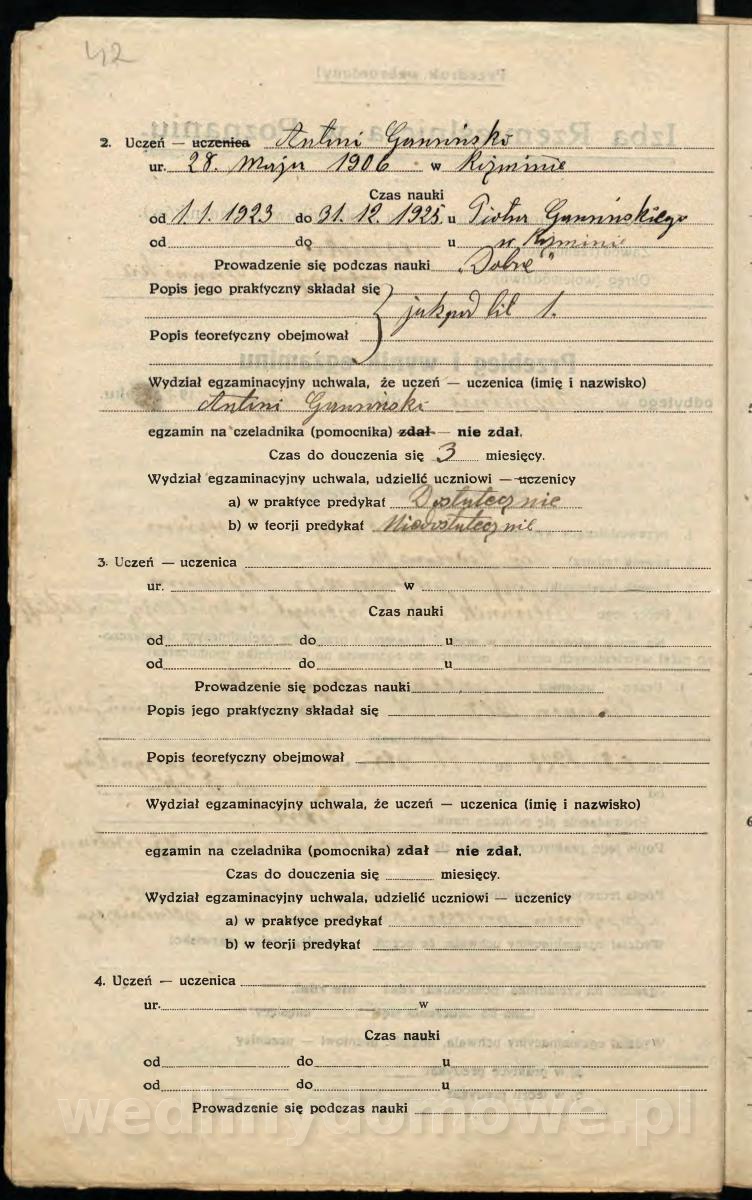 42
2. Uczeń — uczenica Antoni
ur. 28. maja 1906 w Koźminie
Czas nauki
od 1.1.1923 do 31.12.1925 u Piotra
od do u w Koźminie
Prowadzenie się podczas nauki „Dobre"
Popis jego praktyczny składał się
jak pod lit 1.
Popis teoretyczny obejmował
Wydział egzaminacyjny uchwala, że uczeń — uczenica (imię i nazwisko)
Antoni
egzamin na czeladnika (pomocnika) zdał — nie zdał.
Czas do douczenia się 3 miesięcy.
Wydział egzaminacyjny uchwala, udzielić uczniowi — uczenicy
a) w praktyce predykat Dostatecznie
b) w teorji predykat Niedostatecznie
3. Uczeń — uczenica
ur. w
Czas nauki
od do u
od do u
Prowadzenie się podczas nauki
Popis jego praktyczny składał się
Popis teoretyczny obejmował
Wydział egzaminacyjny uchwala, że uczeń — uczenica (imię i nazwisko)
egzamin na czeladnika (pomocnika) zdał — nie zdał.
Czas do douczenia się miesięcy.
Wydział egzaminacyjny uchwala, udzielić uczniowi — uczenicy
a) w praktyce predykat
b) w teorji predykat
4. Uczeń — uczenica
ur. w
Czas nauki
od do u
od do u
Prowadzenie się podczas nauki
wedlinydomowe.pl